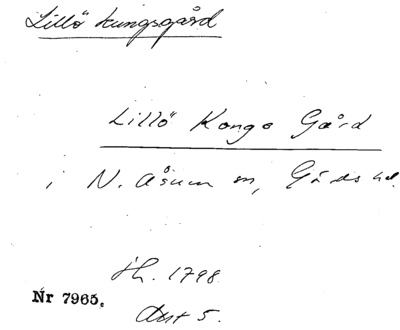 Lillö kungsgård
Lillö Kongs Gård
i N. Åsum sn, Gärds hd.
Jb. 1798
Nr 7965.
Avst 5.